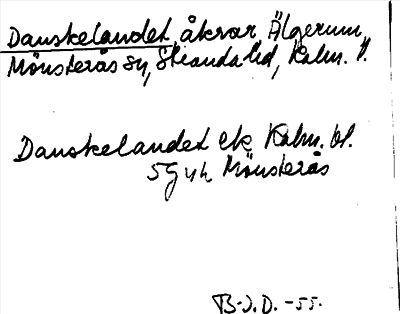 Danskelandet, åkrar, Älgerum,
Mönsterås sn, Stranda hd, Kalm. l.
Danskelandet ek Kalm. bl.
5G4h Mönsterås
B-J.D. -55.